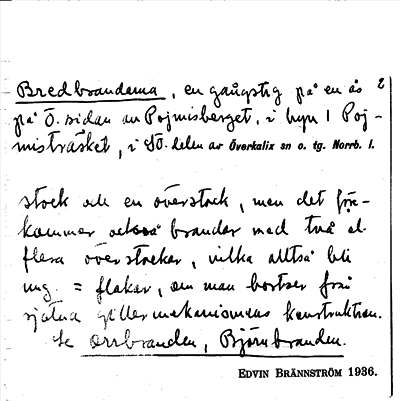 Bredbrandema, en gångstig på en ås 2
på Ö. sidan av Pojmisberget, i byn 1 Poj-
misträsket, i SÖ. delen av Överkalix sn o. tg. Norrb. l.
stock och en överstock, men det före-
kommer också brandar med två el.
flera överstockar, vilka alltså bli
ung. = flakar, om man bortser från
själva gillermekanismens konstruktion.
Se orrbranden, Björnbranden.
EDVIN BRÄNNSTRÖM 1936.